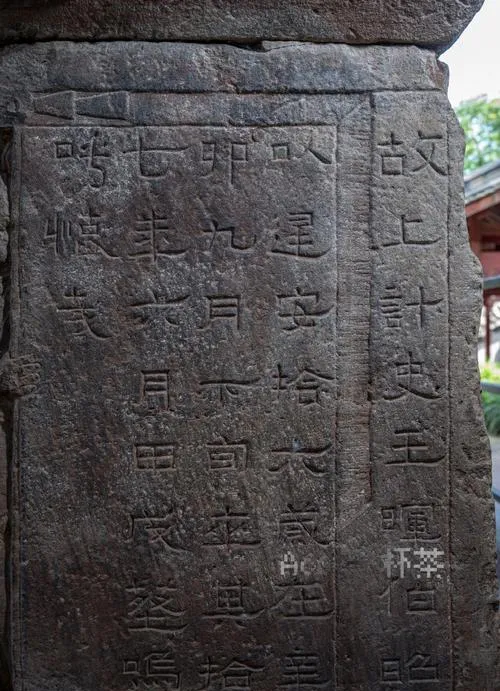 故上計史王暉伯昭
以建安拾六歲在辛
卯九月下旬卒其拾
七年六月甲戌塟嗚
呼哉